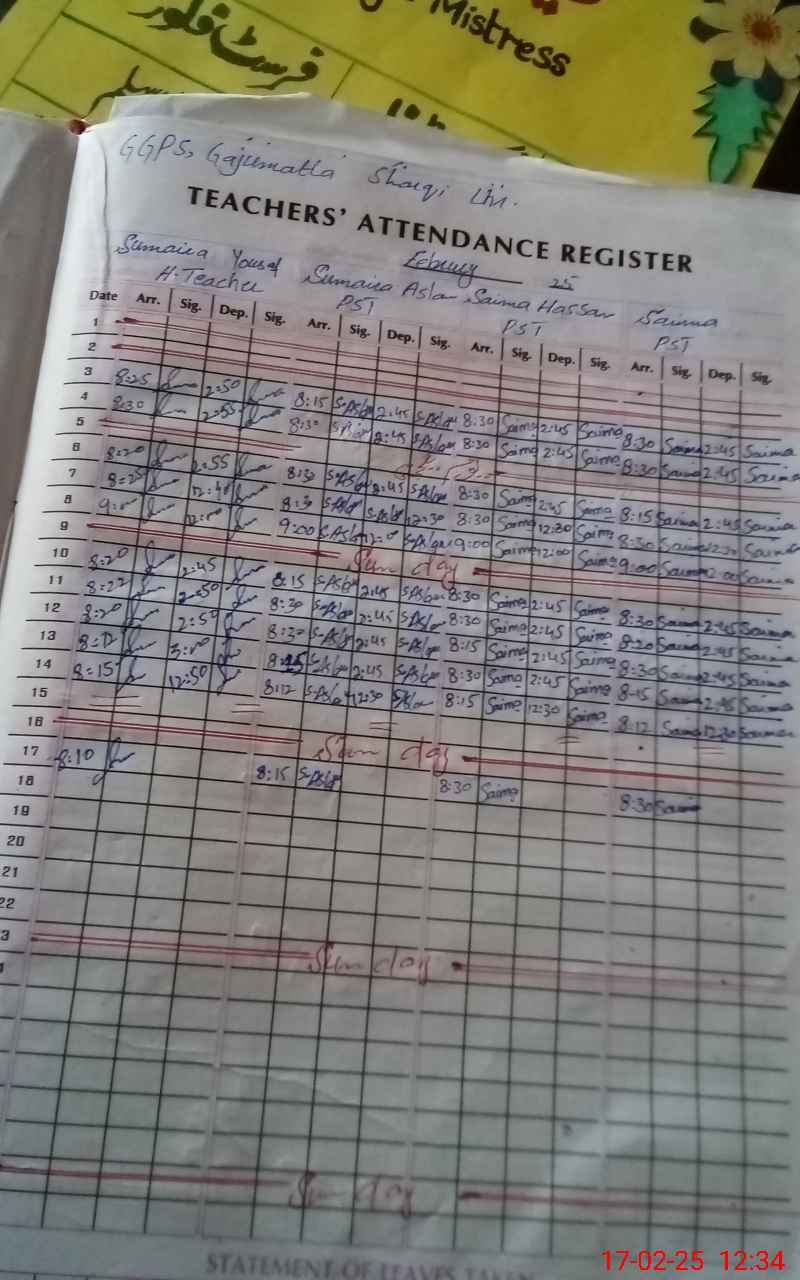 Mistress
فرسٹ فلور
GGPS, Gajjumatta Sharqi Lhr.
TEACHERS' ATTENDANCE REGISTER
Sumaira Yousaf
H.Teacher
February 25
Sumaira Aslam
PST
Saima Hassan
PST
Saima
PST
Date Arr. Sig. Dep. Sig. Arr. Sig. Dep. Sig. Arr. Sig. Dep. Sig. Arr. Sig. Dep. Sig.
1
2
3 8:25 2:50 8:15 S.Aslam 2:45 S.Aslam 8:30 Saima 2:45 Saima 8:30 Saima 2:45 Saima
4 8:30 2:55 8:30 S.Aslam 2:45 S.Aslam 8:30 Saima 2:45 Saima 8:30 Saima 2:45 Saima
5
6 8:20 2:55 8:30 S.Aslam 2:45 S.Aslam 8:30 Saima 2:45 Saima 8:15 Saima 2:45 Saima
7 8:25 12:40 8:30 S.Aslam 12:30 8:30 Saima 12:30 Saima 8:30 Saima Saima
8 9:00 12:00 9:00 S.Aslam 12:00 S.Aslam 9:00 Saima 12:00 Saima 9:00 Saima 12:00 Saima
9 Sunday
10 8:20 2:45 8:15 S.Aslam 2:45 S.Aslam 8:30 Saima 2:45 Saima 8:30 Saima 2:45 Saima
11 8:22 2:50 8:30 S.Aslam 2:45 S.Aslam 8:30 Saima 2:45 Saima 8:20 Saima 2:45 Saima
12 8:20 2:50 8:30 S.Aslam 2:45 S.Aslam 8:15 Saima 2:45 Saima 8:30 Saima 2:45 Saima
13 8:12 3:00 8:15 S.Aslam 2:45 S.Aslam 8:30 Saima 2:45 Saima 8:15 Saima 2:45 Saima
14 8:15 12:50 8:12 S.Aslam 12:30 S.Aslam 8:15 Saima 12:30 Saima 8:12 Saima 12:30 Saima
15
16 Sunday
17 8:10 8:15 S.Aslam 8:30 Saima 8:30 Saima
18
19
20
21
22
3 Sunday
Sunday
STATEMENT OF LEAVES TAKEN
17-02-25 12:34